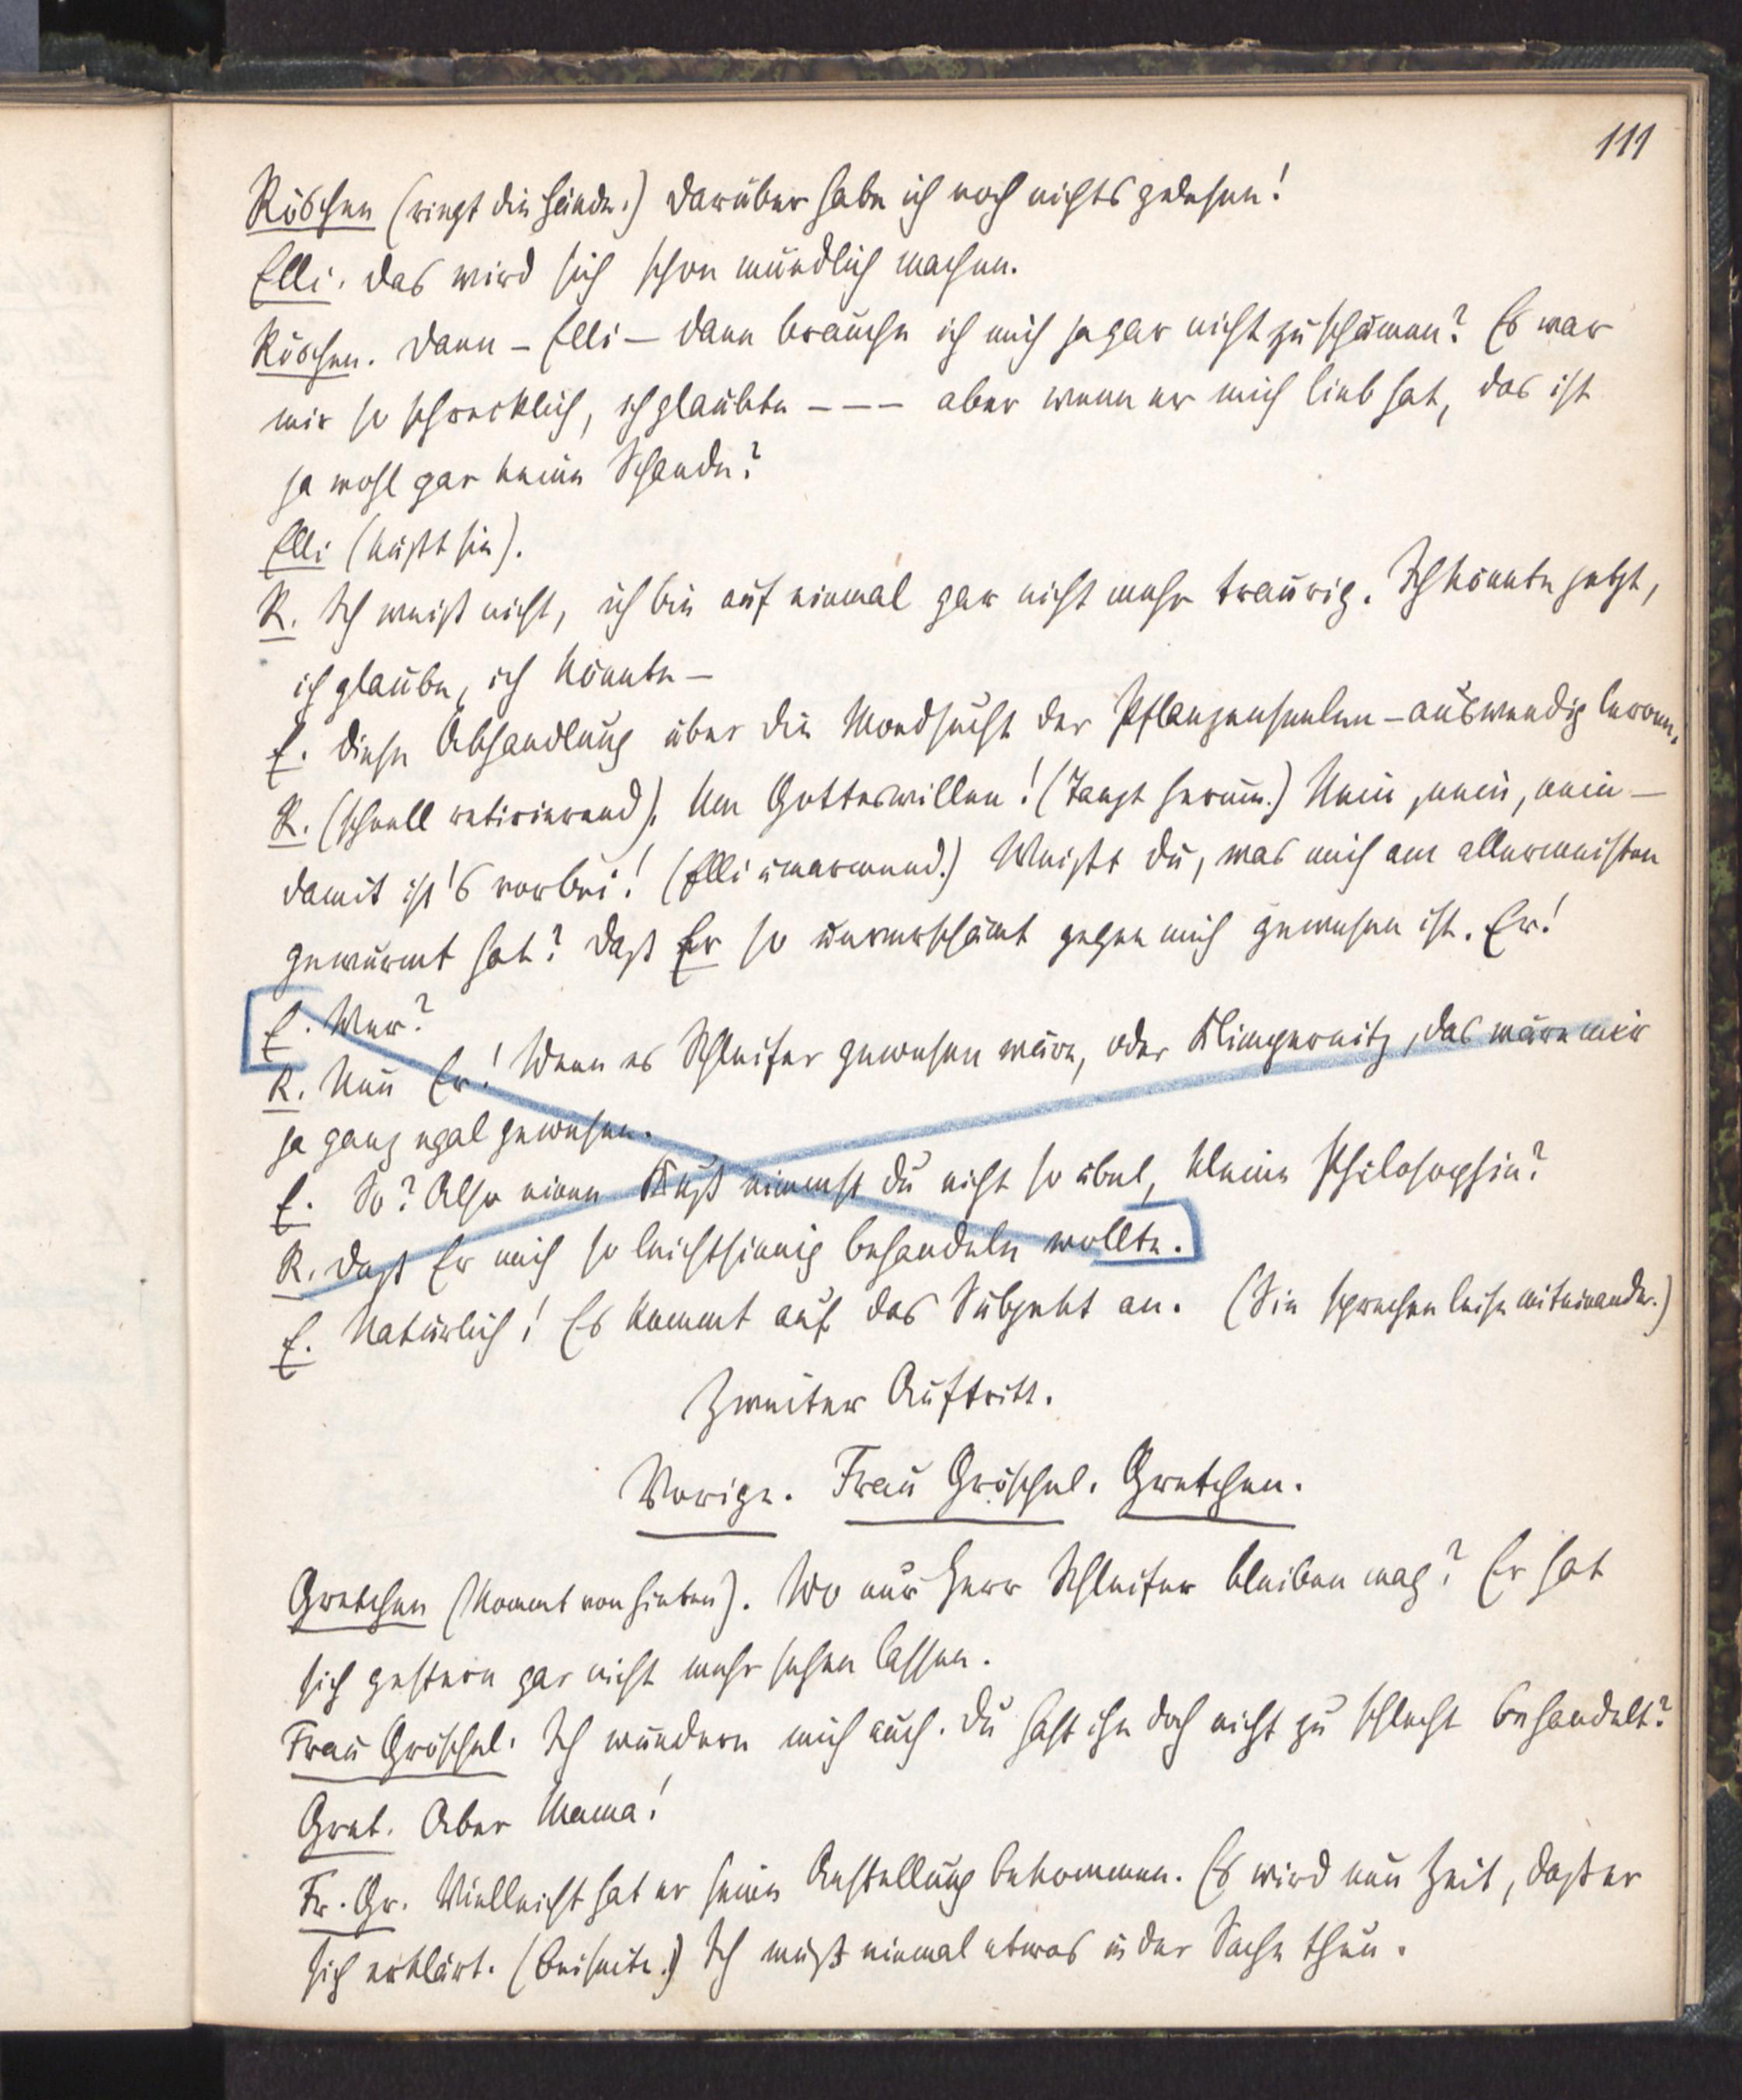 111
Röschen (ringt die Hände.) Darüber habe ich noch nichts gelesen!
Elli. Das wird sich schon mündlich machen.
Röschen. Dann – Elli – dann brauche ich mich ja gar nicht zu schämen? Es war
mir so schrecklich, ich glaubte – – – aber wenn er mich lieb hat, das ist
ja wohl gar keine Schande?
Elli (küßt sie).
R. Ich weiß nicht, ich bin auf einmal gar nicht mehr traurig. Ich könnte jetzt,
ich glaube, ich könnte –
E. Diese Abhandlung über die Mondsucht der Pflanzenseelen – auswendig lernen.
R. (schnell retirierend). Um Gotteswillen! (Tanzt herum.) Nein, nein, nein –
damit ist's vorbei! (Elli umarmend.) Weißt du, was mich am allermeisten
gewurmt hat? Daß Er so unverschämt gegen mich gewesen ist. Er!
E. Wer?
R. Nun Er! Wenn es Schleifer gewesen wäre, oder Klimpernitz, das wäre mir
ja ganz egal gewesen.
E. So? Also einen Kuß nimmst du nicht so übel, kleine Philosophin?
R. Daß Er mich so leichtsinnig behandeln wollte.
E. Natürlich! Es kommt auf das Subjekt an. (Sie sprechen leise miteinander.)
Zweiter Auftritt.
Vorige. Frau Gröschel. Gretchen.
Gretchen (kommt von hinten). Wo nur Herr Schleifer bleiben mag? Er hat
sich gestern gar nicht mehr sehen lassen.
Frau Gröschel. Ich wundere mich auch. Du hast ihn doch nicht zu schlecht behandelt?
Gret. Aber Mama!
Fr. Gr. Vielleicht hat er seine Anstellung bekommen. Es wird nun Zeit, daß er
sich erklärt. (Beiseite.) Ich muß einmal etwas in der Sache thun.